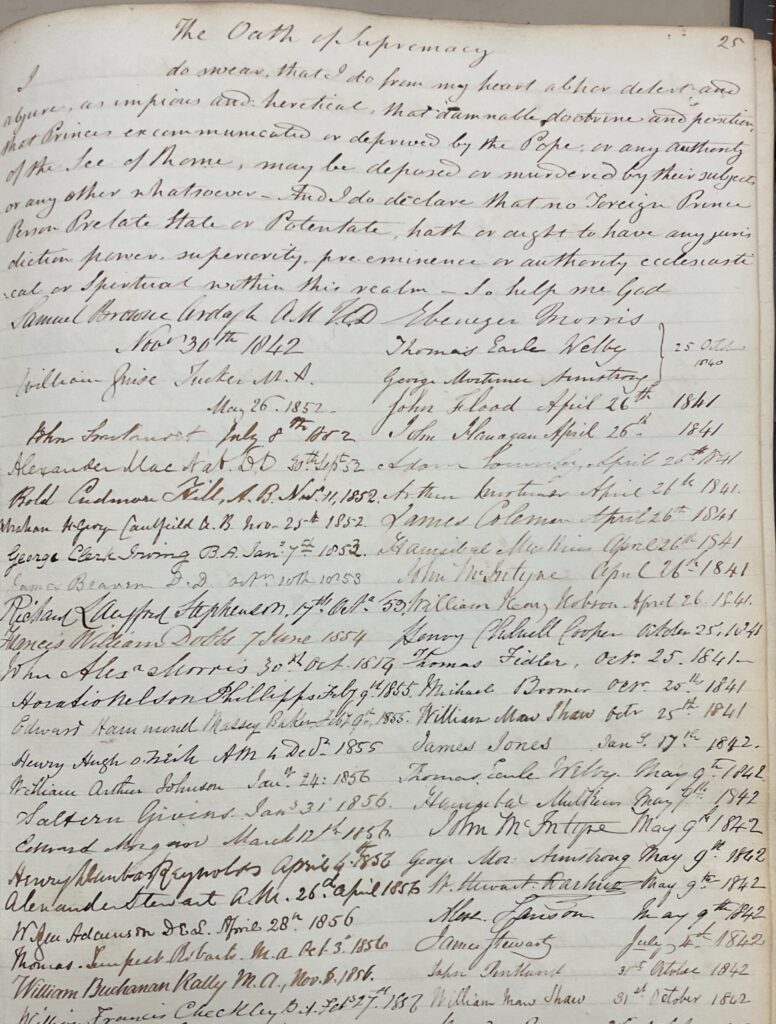 The Oath of Supremacy
25
I do swear, that I do from my heart abhor detest and
abjure, as impious and heretical, that damnable doctrine and position,
that Princes excommunicated or deprived by the Pope, or any authority
of the See of Rome, may be deposed or murdered by their subjects
or any other whatsoever - And I do declare that no Foreign Prince
Person Prelate State or Potentate, hath or ought to have any juris
diction power, superiority, pre-eminence or authority ecclesiasti
cal or Spiritual within this realm - So help me God
Samuel Browne Ardagh A.M. T.C.D
Novr 30th 1842
William Guise Tucker M.A.
May 26. 1852.
John July 8th 1852
Alexander Mac Nab. D.D 30th Sept 52
Bold Cudmore Hill, A.B. Nov. 11, 1852.
Caulfield A. B. Nov. 25th 1852.
George Clark Irving B.A. Jany 7th 1853.
James Beaven D.D. Octr 10th 1853
Richard Langford Stephenson. 17th Octr 53
Francis William Dobbs 7 June 1854
John Alexr Morris 30th Oct. 1854
Horatio Nelson Phillipps Feby 9th 1855.
Edward Hammond Massey Baker Feby 9th, 1855.
Henry Hugh AM 4 Decr 1855
William Arthur Johnson Jany 24: 1856
Saltern Givins Jany 31st 1856.
Edward Morgan March 12th 1856
Henry Dunbar Reynolds April 4th 1856
Alexander Stewart A.M. 26th April 1856
Wm Agar Adamson D.C.L. April 28th 1856
Thomas Tempest Robarts M.A Oct 3d 1856
William Buchanan Rally M.A., Nov. 6, 1856.
William Francis Checkley B.A. 27th 1856
Ebenezer Morris
Thomas Earle Welby
George Mortimer Armstrong
25 Octr
1840
John Flood April 26th 1841
John Flanagan April 26th 1841
Adam Townley April 26th 1841
Arthur Mortimer April 26th 1841.
James Coleman April 26th 1841
Hannibal Mulkins April 26th 1841
John McIntyre April 26th 1841
William Henry Hobson April 26. 1841.
Henry Chowell Cooper October 25. 1841
Thomas Fidler, Octr 25. 1841-
Michael Boomer Octr 25th 1841
William Maw Shaw Octr 25th 1841
James Jones Jany 17th 1842.
Thomas Earle Welby May 9th 1842
Hannibal Mulkins May 9th 1842
John McIntyre May 9th 1842
George Mor. Armstrong May 9th 1842
W. Stewart Darling May 9th 1842
Alexr. Sanson May 9th 1842
James Stewart July 4th 1842
John Pentland 31st October 1842
William Maw Shaw 31st October 1842